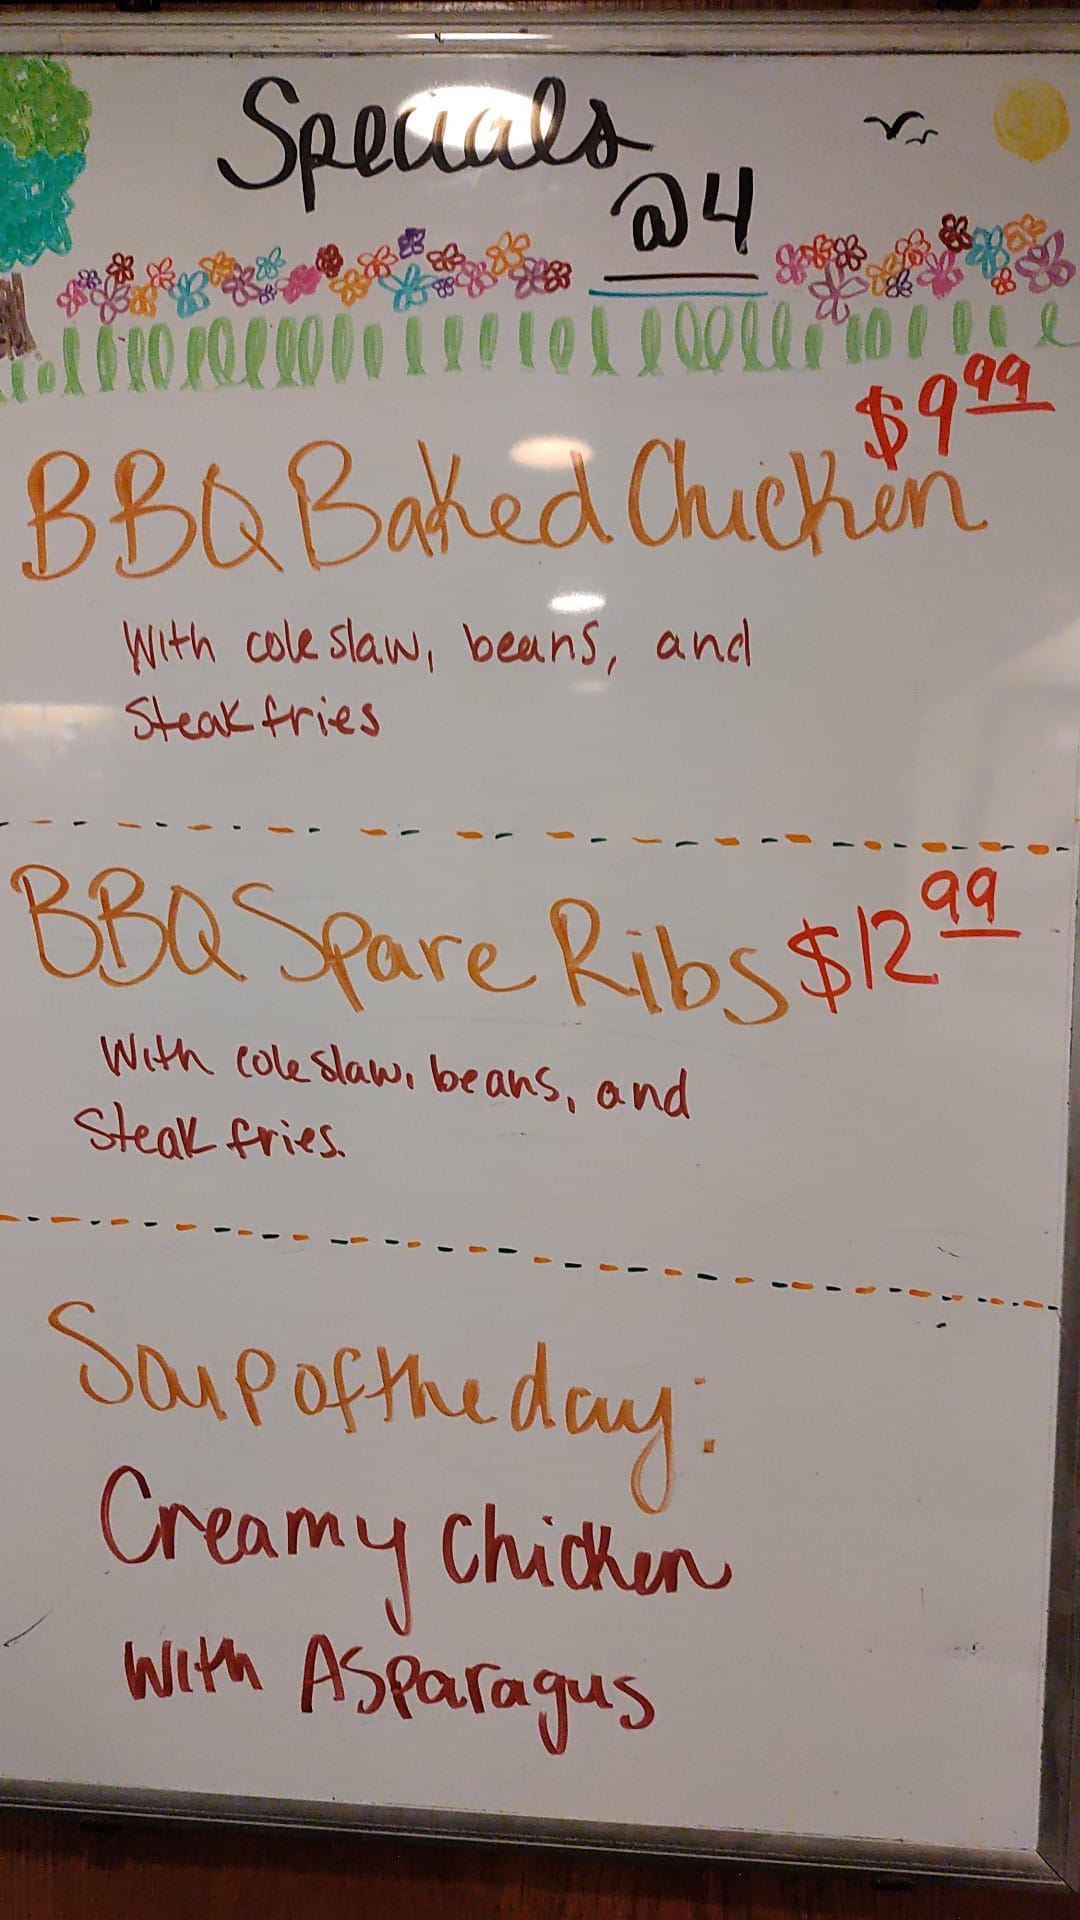 Specials
@4
$9.99
BBQ Baked Chicken
With coleslaw, beans, and
Steak fries
BBQ Spare Ribs $12.99
With coleslaw, beans, and
Steak fries.
Soup of the day:
Creamy chicken
with Asparagus